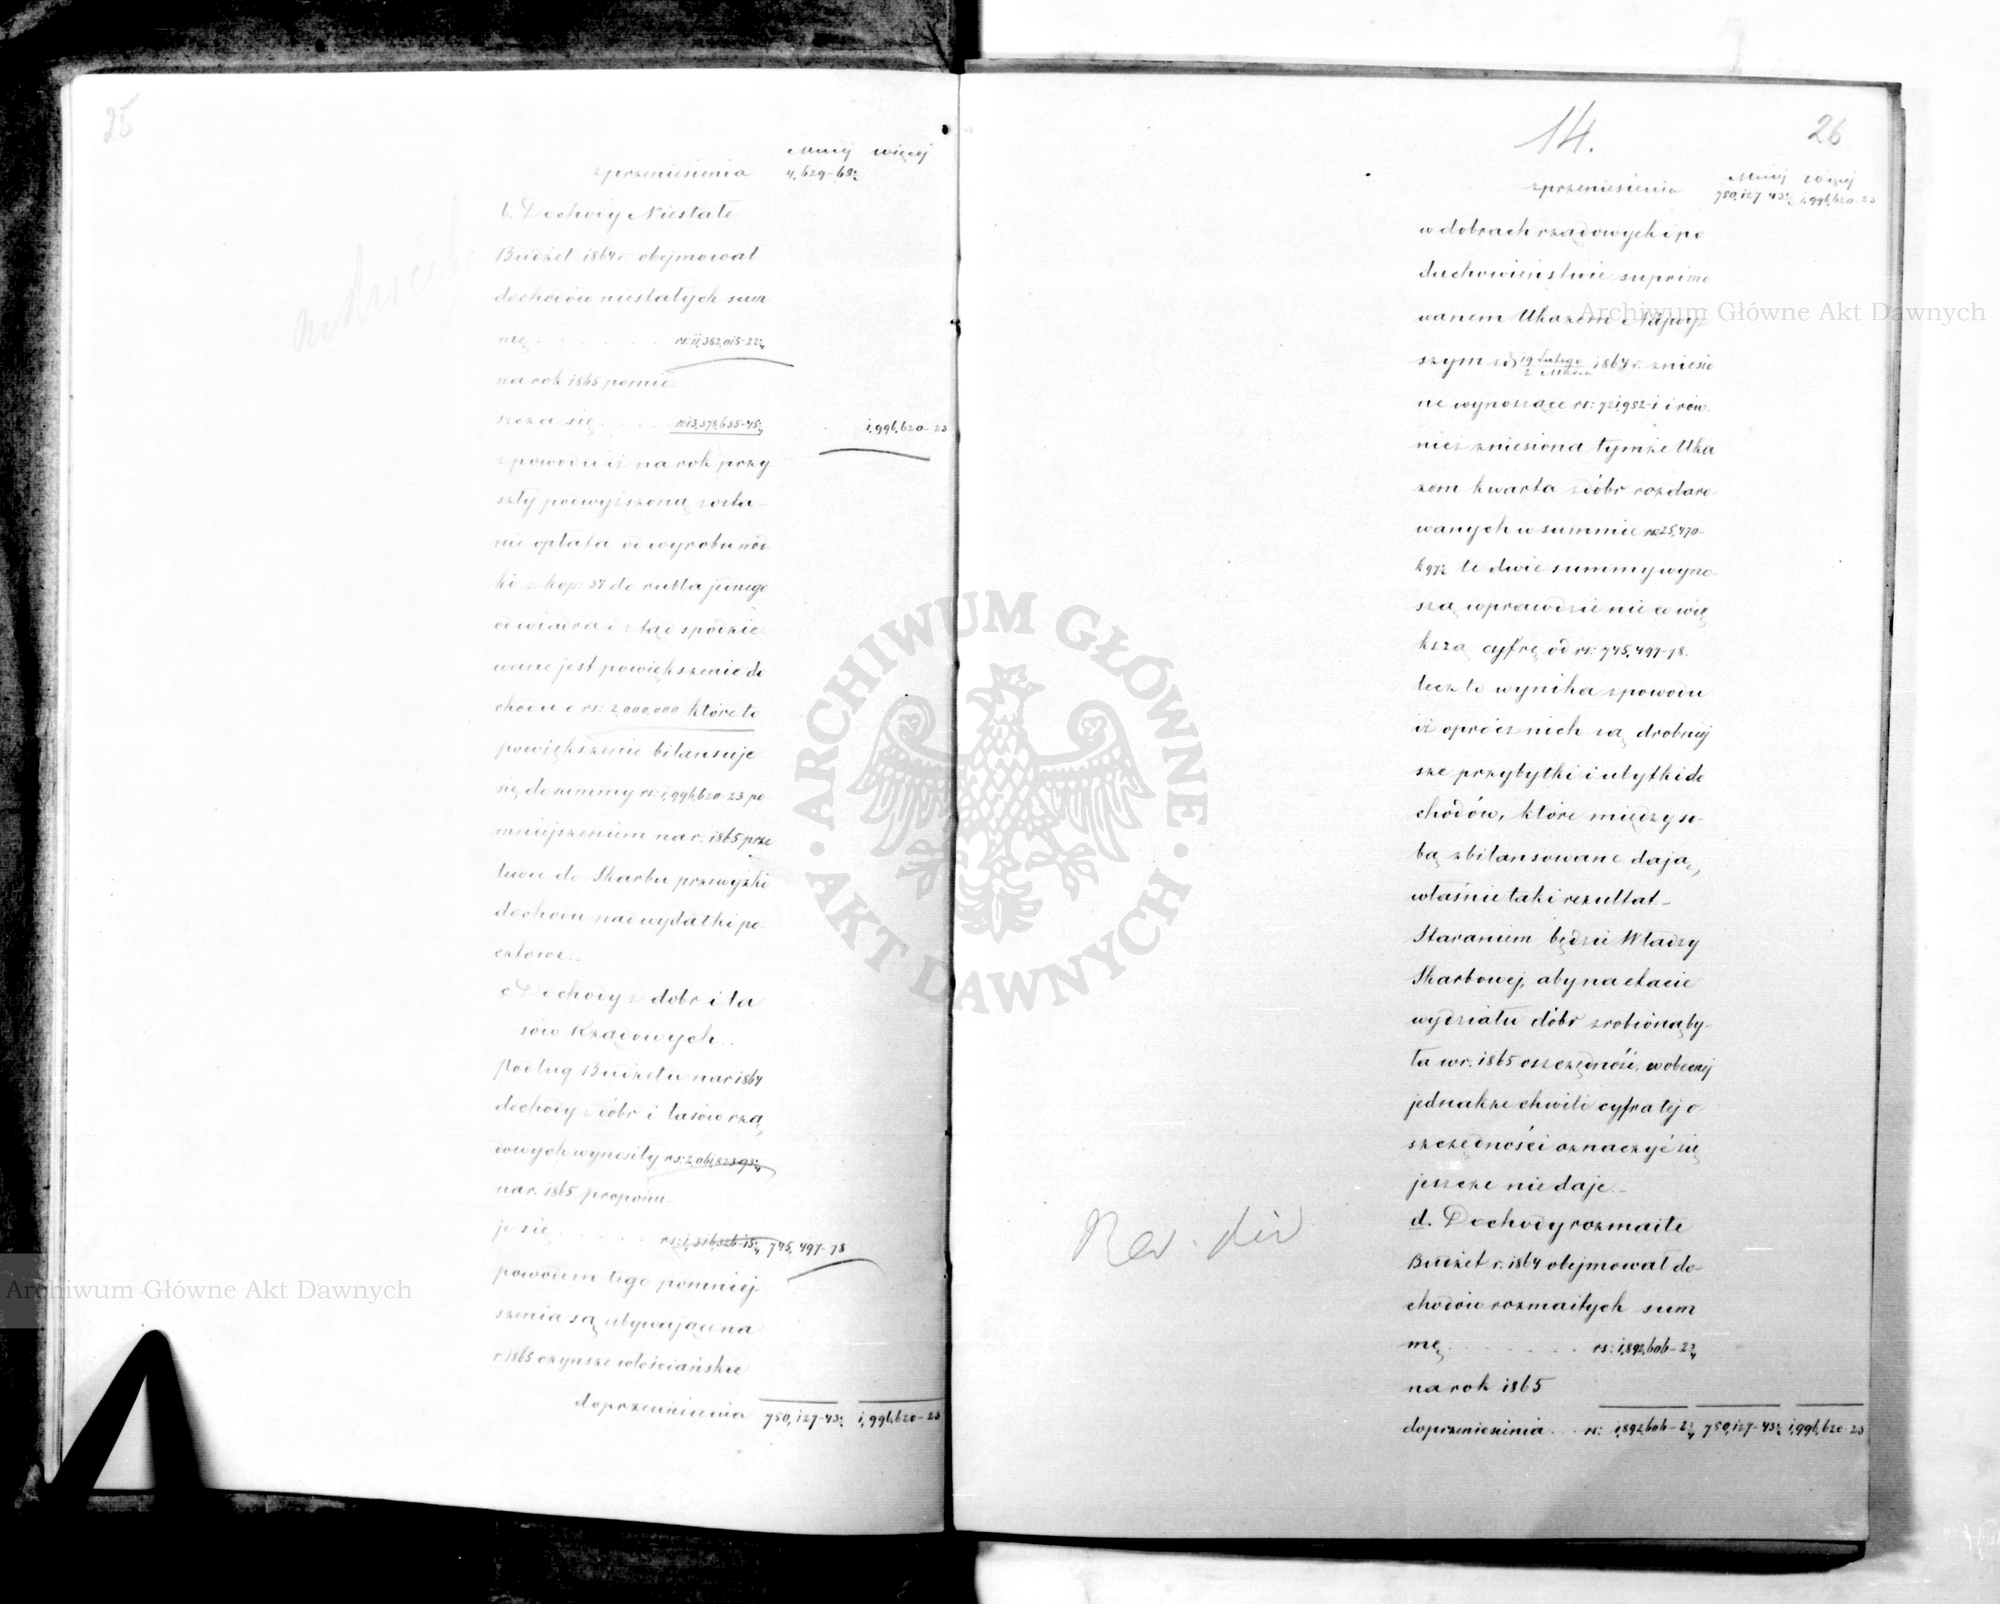 25
Mniej więcej
z przeniesienia 4,629-65
b. Dochody Niestałe
Budżet 1864 r. obejmował
dochodów niestałych sum
mę rs: 11,382,015-22
na rok 1865 pomie
szcza się rs: 13,378,635-45 1,996,620-23
z powodu iż na rok przy
szły podwyższoną zosta
nie opłata od wyrobu wód
ki z kop: 54 do rubla jednego
od wiadra i ztąd spodzie
wane jest powiększenie do
chodu o rs: 2,000,000 które to
powiększenie bilansuje
się do summy rs: 1,996,620-23 po
mniejszeniem na r. 1865 prze
lewu do Skarbu przewyżki
dochodu nad wydatki po
cztowe.
c Dochody z dóbr i la
sów Rządowych.
Podług Budżetu na r 1864
dochody z dóbr i lasów rzą
dowych wynosiły rs:
na r. 1865 proponu
je się rs: 745,497-78
powodem tego pomniej
szenia są ubywające na
r. 1865 czynsze włościańskie
do przeniesienia 750,127-43 1,996,620-23
14.
26
Mniej Więcej
z przeniesienia 750,127-43 1,996,620-23
w dobrach rządowych i po
duchowieństwie suprimo
wanem Ukazem Najwyż
szym z d 19 Lutego / 2 Marca 1864 r. zniesio
ne wynoszące rs: 721,952-1 i rów
nież zniesiona tymże Uka
zem kwarta z dóbr rozdaro-
wanych w summie rs 25,470-
k 97½ te dwie summy wyno-
szą wprawdzie nieco wię
kszą cyfrę od rs: 745,497-78.
lecz to wynika z powodu
iż oprócz nich są drobniej
sze przybytki i ubytki do
chodów, które między so-
bą zbilansowane dają,
właśnie taki rezultat-
Staraniem będzie Władzy
Skarbowej, aby na etacie
wydziału dóbr zrobioną by-
ła w r. 1865 oszczędność, w obecnej
jednakże chwili cyfra tej o
szczędności oznaczyć się
jeszcze nie daje.-
d. Dochody rozmaite
Budżet r. 1864 obejmował do-
chodów rozmaitych sum
mę rs: 1,892,606-2
na rok 1865
do przeniesienia rs: 1,892,606-2 750,127-43 1,996,620-23
Archiwum Główne Akt Dawnych
Archiwum Główne Akt Dawnych
ARCHIWUM GŁÓWNE · AKT DAWNYCH ·